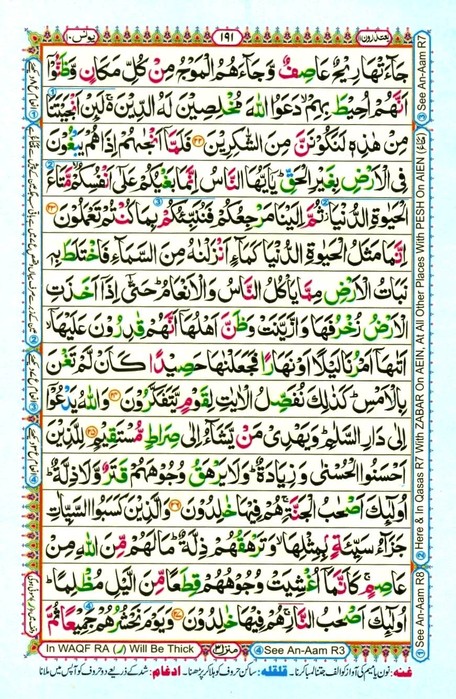 یعتذرون ۱۱
۱۹۱
یونس ۱۰
جَآءَتْهَا رِیْحٌ عَاصِفٌ وَّ جَآءَهُمُ الْمَوْجُ مِنْ كُلِّ مَكَانٍ وَّ ظَنُّوْۤا
اَنَّهُمْ اُحِیْطَ بِهِمْ ۙ دَعَوُا اللّٰهَ مُخْلِصِیْنَ لَهُ الدِّیْنَ ۚ۬ لَىِٕنْ اَنْجَیْتَنَا
مِنْ هٰذِهٖ لَنَكُوْنَنَّ مِنَ الشّٰكِرِیْنَ ۝۲۲ فَلَمَّاۤ اَنْجٰىهُمْ اِذَا هُمْ یَبْغُوْنَ
فِی الْاَرْضِ بِغَیْرِ الْحَقِّ ؕ یٰۤاَیُّهَا النَّاسُ اِنَّمَا بَغْیُكُمْ عَلٰۤی اَنْفُسِكُمْ ۙ مَّتَاعَ
الْحَیٰوةِ الدُّنْیَا ؗ ثُمَّ اِلَیْنَا مَرْجِعُكُمْ فَنُنَبِّئُكُمْ بِمَا كُنْتُمْ تَعْمَلُوْنَ ۝۲۳
اِنَّمَا مَثَلُ الْحَیٰوةِ الدُّنْیَا كَمَآءٍ اَنْزَلْنٰهُ مِنَ السَّمَآءِ فَاخْتَلَطَ بِهٖ
نَبَاتُ الْاَرْضِ مِمَّا یَاْكُلُ النَّاسُ وَ الْاَنْعَامُ ؕ حَتّٰۤی اِذَاۤ اَخَذَتِ
الْاَرْضُ زُخْرُفَهَا وَ ازَّیَّنَتْ وَ ظَنَّ اَهْلُهَاۤ اَنَّهُمْ قٰدِرُوْنَ عَلَیْهَاۤ ۙ
اَتٰىهَاۤ اَمْرُنَا لَیْلًا اَوْ نَهَارًا فَجَعَلْنٰهَا حَصِیْدًا كَاَنْ لَّمْ تَغْنَ
بِالْاَمْسِ ؕ كَذٰلِكَ نُفَصِّلُ الْاٰیٰتِ لِقَوْمٍ یَّتَفَكَّرُوْنَ ۝۲۴ وَ اللّٰهُ یَدْعُوْۤا
اِلٰی دَارِ السَّلٰمِ ؕ وَ یَهْدِیْ مَنْ یَّشَآءُ اِلٰی صِرَاطٍ مُّسْتَقِیْمٍ ۝۲۵ لِلَّذِیْنَ
اَحْسَنُوا الْحُسْنٰی وَ زِیَادَةٌ ؕ وَ لَا یَرْهَقُ وُجُوْهَهُمْ قَتَرٌ وَّ لَا ذِلَّةٌ ؕ
اُولٰٓىِٕكَ اَصْحٰبُ الْجَنَّةِ ۚ هُمْ فِیْهَا خٰلِدُوْنَ ۝۲۶ وَ الَّذِیْنَ كَسَبُوا السَّیِّاٰتِ
جَزَآءُ سَیِّئَةٍۭ بِمِثْلِهَا ۙ وَ تَرْهَقُهُمْ ذِلَّةٌ ؕ مَا لَهُمْ مِّنَ اللّٰهِ مِنْ
عَاصِمٍ ۚ كَاَنَّمَاۤ اُغْشِیَتْ وُجُوْهُهُمْ قِطَعًا مِّنَ الَّیْلِ مُظْلِمًا ؕ
اُولٰٓىِٕكَ اَصْحٰبُ النَّارِ ۚ هُمْ فِیْهَا خٰلِدُوْنَ ۝۲۷ وَ یَوْمَ نَحْشُرُهُمْ جَمِیْعًا ثُمَّ
③ See An-Aam R7
② Here & In Qasas R7 With ZABAR On AEIN, At All Other Places With PESH On AIEN (مَتَاعُ)
① See An-Aam R8
In WAQF RA (ر) Will Be Thick
منزل ۳
④ See An-Aam R3
غنہ: نون یا میم کی آواز کو الف جتنا لمبا کرنا۔ قلقلہ: ساکن حروف کو ہلا کر پڑھنا۔ ادغام: شد کے ذریعے دو حروف کو آپس میں ملانا